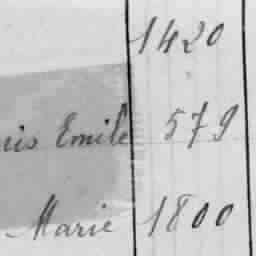 1420
uis Emile 579
Marie 1800